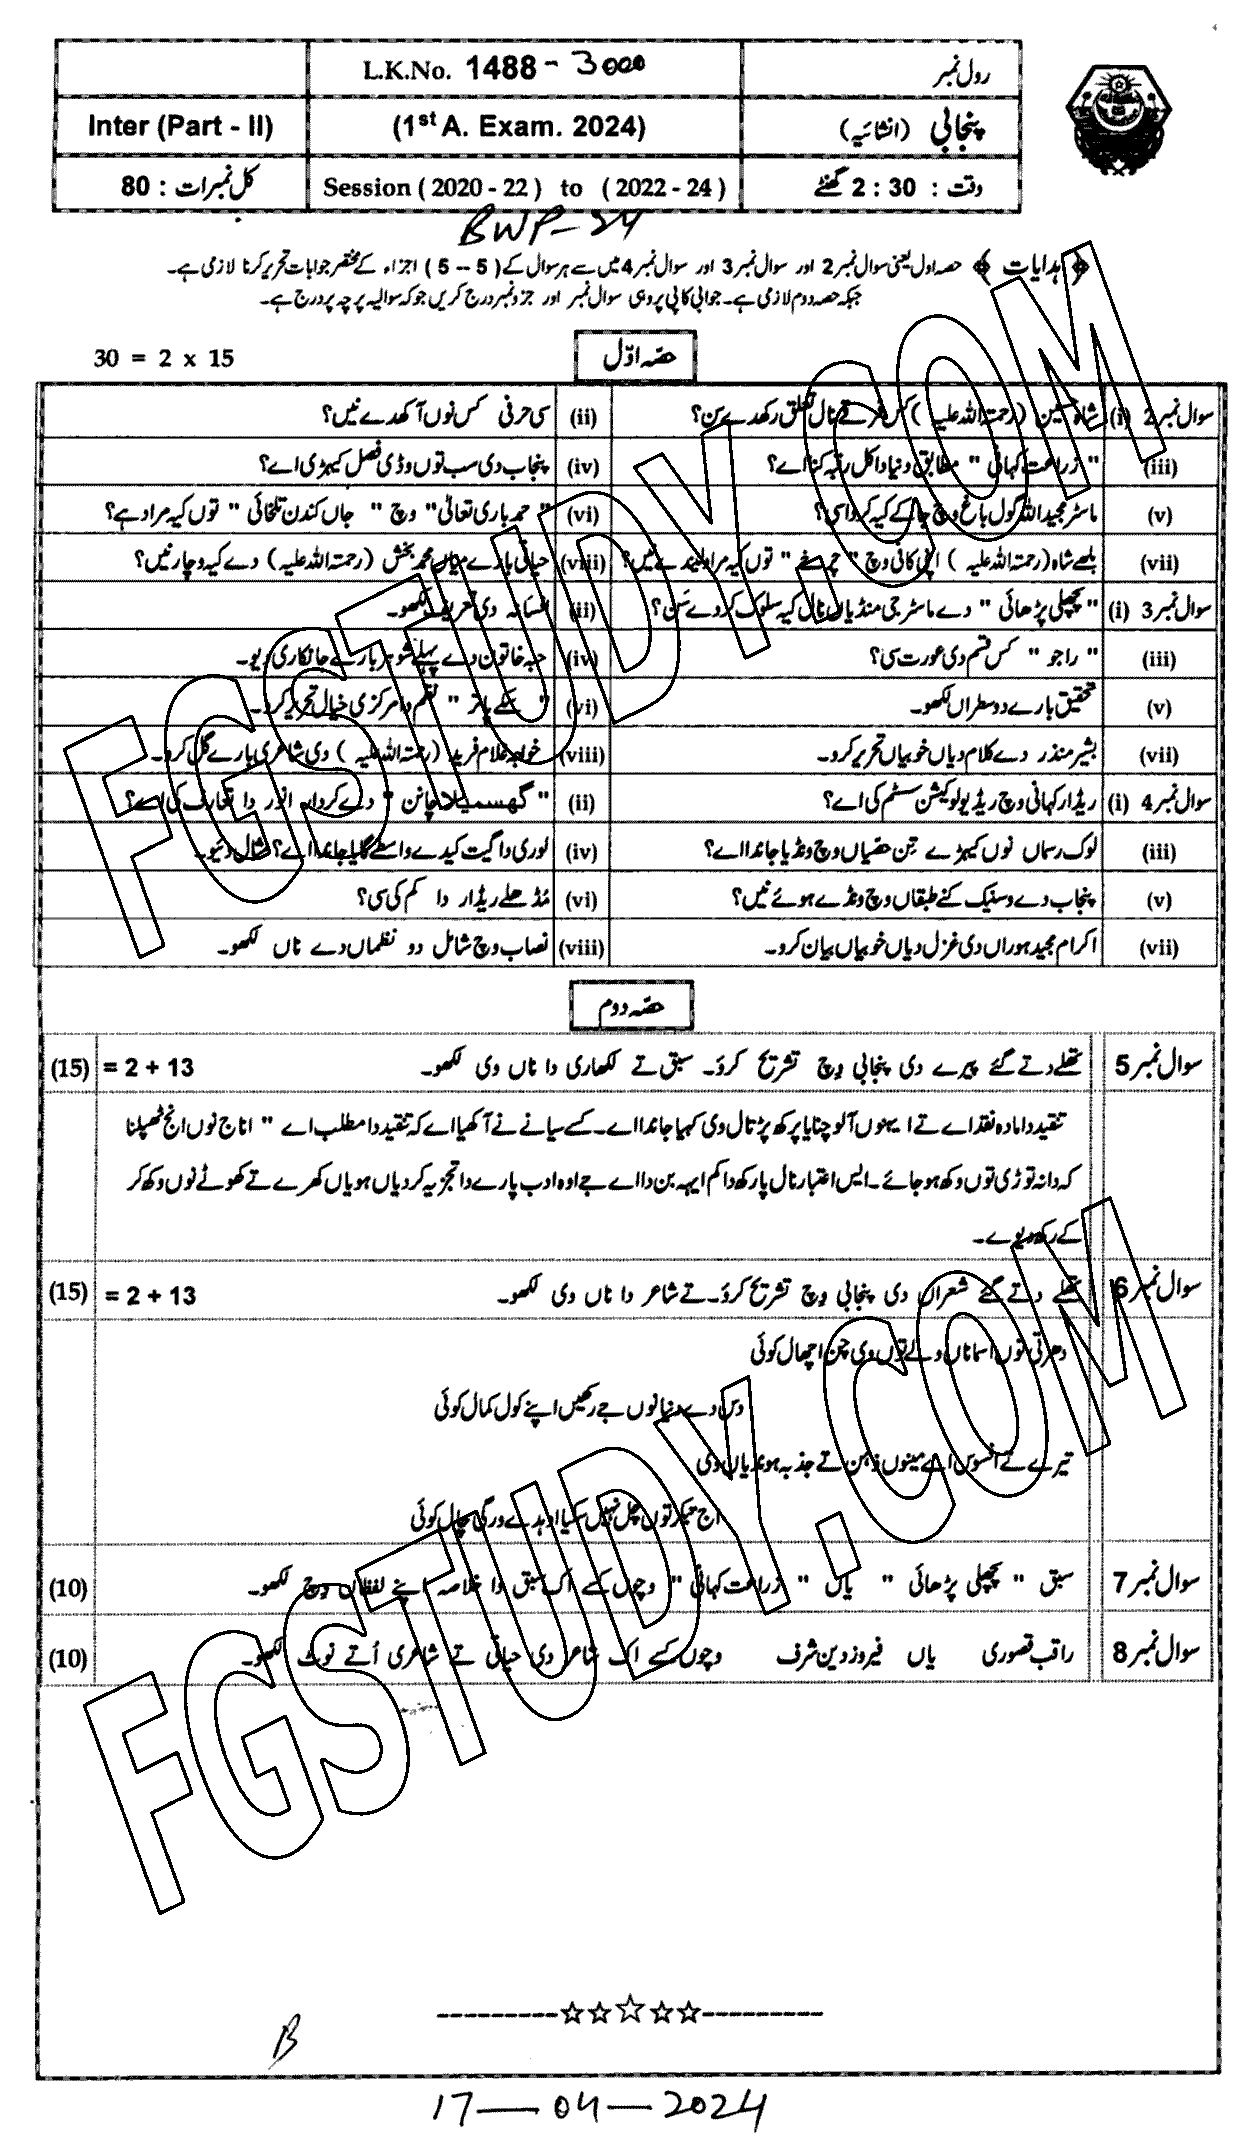 رول نمبر L.K.No. 1488 - 3000
پنجابی (انشائیہ) (1st A. Exam. 2024) Inter (Part - II)
وقت : 2 : 30 گھنٹے Session ( 2020 - 22 ) to ( 2022 - 24 ) کل نمبرات : 80
BWP-24
﴿ ہدایات ﴾ حصہ اول یعنی سوال نمبر 2 اور سوال نمبر 3 اور سوال نمبر 4 میں سے ہر سوال کے ( 5 – 5 ) اجزاء کے مختصر جوابات تحریر کرنا لازمی ہے۔
جبکہ حصہ دوم لازمی ہے۔ جوابی کاپی پر وہی سوال نمبر اور جزو نمبر درج کریں جو کہ سوالیہ پرچہ پر درج ہے۔
حصّہ اوّل 30 = 2 x 15
سوال نمبر 2 (i) شاہ حسین (رحمتہ اللہ علیہ ) کس فرقے نال تعلق رکھدے سن؟ (ii) سی حرفی کس نوں آکھدے نیں؟
(iii) " زراعت کہانی " مطابق دنیا دا کل رقبہ کنا اے؟ (iv) پنجاب دی سب توں وڈی فصل کیہڑی اے؟
(v) ماسٹر مجید اللہ گول باغ وچ جا کے کیہ کردا سی؟ (vi) " حمد باری تعالیٰ" وچ " جاں کندن تلخائی " توں کیہ مراد ہے؟
(vii) بلھے شاہ (رحمتہ اللہ علیہ ) اپنی کافی وچ " چرخے " توں کیہ مراد لیندے نیں؟ (viii) حیاتی بارے میاں محمد بخش (رحمتہ اللہ علیہ) دے کیہ وچار نیں؟
سوال نمبر 3 (i) " پچھلی پڑھائی " دے ماسٹر جی منڈیاں نال کیہ سلوک کردے سَن؟ (ii) افسانہ دی تعریف لکھو۔
(iii) " راجو " کس قسم دی عورت سی؟ (iv) حبہ خاتون دے پہلے شوہر بارے جانکاری دیو۔
(v) تحقیق بارے دو سطراں لکھو۔ (vi) " سُکے پتر " نظم دا مرکزی خیال تحریر کرو۔
(vii) بشیر منذر دے کلام دیاں خوبیاں تحریر کرو۔ (viii) خواجہ غلام فرید (رحمتہ اللہ علیہ ) دی شاعری بارے گل کرو۔
سوال نمبر 4 (i) ریڈار کہانی وچ ریڈیو لوکیشن سسٹم کی اے؟ (ii) " گھسمیلا چانن " دے کردار انور دا تعارف کی اے؟
(iii) لوک رسماں نوں کیہڑے تِن حصّیاں وچ ونڈیا جاندا اے؟ (iv) لوری دا گیت کیدے واسطے گایا جاندا اے؟ مثال دیو۔
(v) پنجاب دے وسنیک کنے طبقاں وچ ونڈے ہوئے نیں؟ (vi) مُڈھلے ریڈار دا کم کی سی؟
(vii) اکرام مجید ہوراں دی غزل دیاں خوبیاں بیان کرو۔ (viii) نصاب وچ شامل دو نظماں دے ناں لکھو۔
حصّہ دوم
سوال نمبر 5 تھلے دتے گئے پیرے دی پنجابی وِچ تشریح کرؤ۔ سبق تے لکھاری دا ناں وی لکھو۔ (15) = 2 + 13
تنقید دا مادہ نقد اے تے ایہوں آلوچنا یا پرکھ پڑتال وی کہیا جاندا اے۔ کسے سیانے نے آکھیا اے کہ تنقید دا مطلب اے " اناج نوں انج ٹھپلنا
کہ دانہ توڑی توں وکھ ہو جائے۔ ایس اعتبار نال پارکھ دا کم ایہہ بن دا اے جے اوہ ادب پارے دا تجزیہ کردیاں ہویاں کھرے تے کھوٹے نوں وکھ کر
کے رکھ دیوے۔
سوال نمبر 6 تھلے دتے گئے شعراں دی پنجابی وِچ تشریح کرؤ۔ تے شاعر دا ناں وی لکھو۔ (15) = 2 + 13
دھرتی توں اسماناں ولے توں وی چن اچھال کوئی
دس دے دنیا نوں جے رکھیں اپنے کول کمال کوئی
تیرے تے افسوس اے مینوں ذہن تے جذبہ ہوندیاں وی
اج تیکر توں چل نہیں سکیا اوہدے ورگی چال کوئی
سوال نمبر 7 سبق " پچھلی پڑھائی " یاں " زراعت کہانی " وچوں کسے اک سبق دا خلاصہ اپنے لفظاں وِچ لکھو۔ (10)
سوال نمبر 8 راقب قصوری یاں فیروز دین شرف وچوں کسے اک شاعر دی حیاتی تے شاعری اُتے نوٹ لکھو۔ (10)
---------☆☆☆☆☆---------
B
17-04-2024
FGSTUDY.COM
FGSTUDY.COM